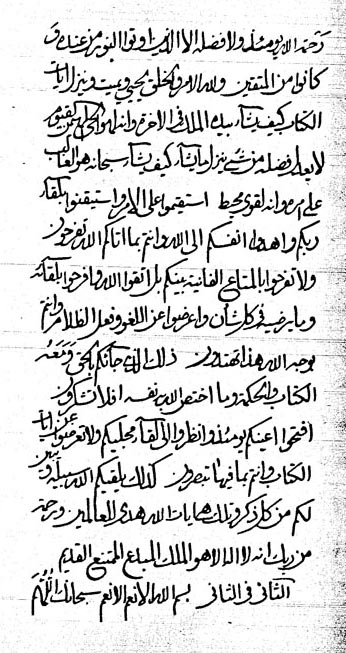 رحمة الله يومئذ ولا فضله الا الذين اوتوا النور من عنده و
كانوا من المتقين ولله الامر والخلق يحيي ويميت وينزل ايات
الكتاب كيف يشاء بيده الملك في الاخرة وانه لهو الحي القيوم
لا يعد لفضله من شيء ينزل ما يشاء كيف يشاء سبحانه هو الغالب
على امره وانه لقوي محيط استقيموا على الامر واستيقنوا بلقاء
ربكم واهدوا انفسكم الى الله وانتم بما اتاكم الله تفرحون
ولا تفرحوا بالمتاع الفانية بينكم بل اتقوا الله وافرحوا بلقائه
وما يرضيه في كل شان واعرضوا عن اللغو وفعل الظلام وانتم
بوجه الله هذا تهتدون ذلك الذي جائكم بالحق ومعه
الكتاب والحكمة وما اختص الله نفسه افلا تشكرون
افتحوا اعينكم يومئذ وانظروا الى لقاء محليكم ولا تعرضوا عن ايات
الكتاب وانتم بما فيها تبصرون كذلك يلقيكم الله سبيله ويبين
لكم من كل ذكر وتلك هدايات الله هدى للعالمين ورحمة
من ربك انه لا اله الا هو الملك المتمنع القديم
الثاني في الثاني بسم الله الامنع الامنع سبحانك اللهم